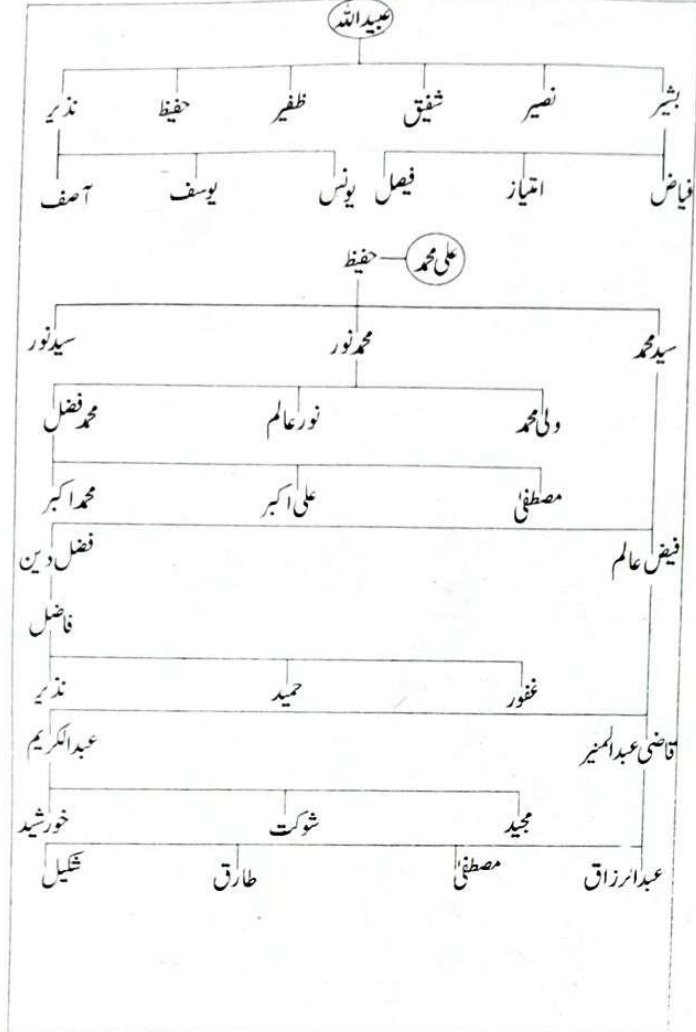 عبید اللہ
بشیر نصیر شفیق ظفیر حفیظ نذیر
فیاض امتیاز فیصل یونس یوسف آصف
علی محمد حفیظ
سید محمد محمد نور سید نور
ولی محمد نور عالم محمد فضل
مصطفیٰ علی اکبر محمد اکبر
فیض عالم فضل دین
فاضل
غفور حمید نذیر
قاضی عبدالمنیر عبدالکریم
مجید شوکت خورشید
عبدالرزاق مصطفیٰ طارق شکیل